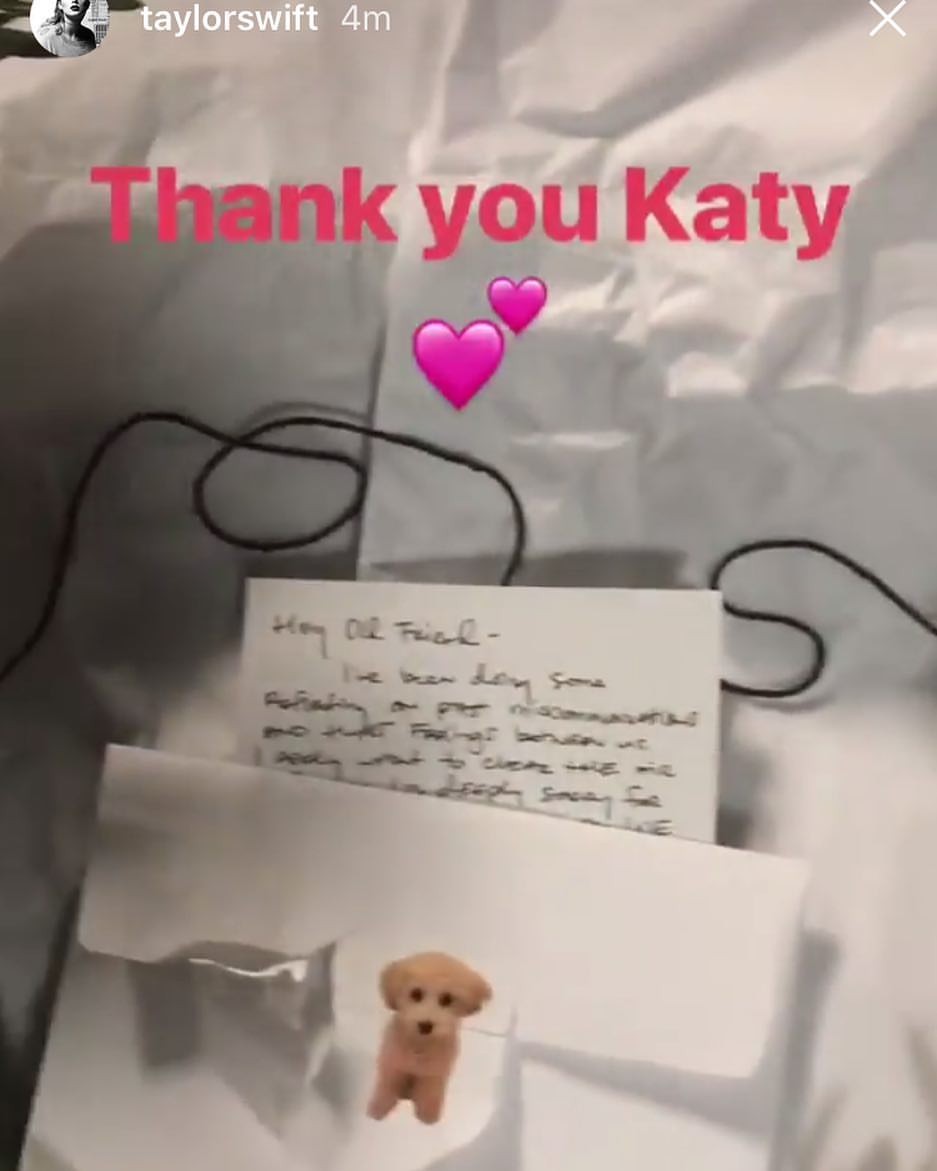 taylorswift 4m
Thank you Katy
Hey Old Friend -
I've been doing some
Reflecting on past miscommunications
and hurt Feelings between us
I really want to clear THE air
deeply sorry for